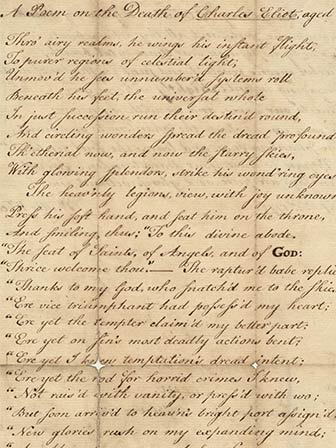 A Poem on the Death of Charles Eliot, aged
Thro' airy realms, he wings his instant flight,
To purer regions of celestial light;
Unmov'd he sees unnumber'd systems roll
Beneath his feet, the universal whole
In just succession run their destin'd round,
And circling wonders spread the dread profound
Th' etherial now, and now the starry skies,
With glowing splendors, strike his wond'ring eyes
The heav'nly legions, view, with joy unknown
Press his soft hand, and seat him on the throne,
And smiling, thus; "To this divine abode.
"The seat of Saints, of Angels, and of GOD:
"Thrice welcome thou." — The raptur'd babe replie
"Thanks to my God, who snatch'd me to the skie
"Ere vice triumphant had possess'd my heart;
"Ere yet the tempter claim'd my better part;
"Ere yet on sin's most deadly actions bent;
"Ere yet I knew temptation's dread intent;
"Ere yet the rod for horrid crimes I knew,
"Not rais'd with vanity, or press'd with wo;
"But soon arriv'd to heav'n's bright port assign'd
"New glories rush on my expanding mind;